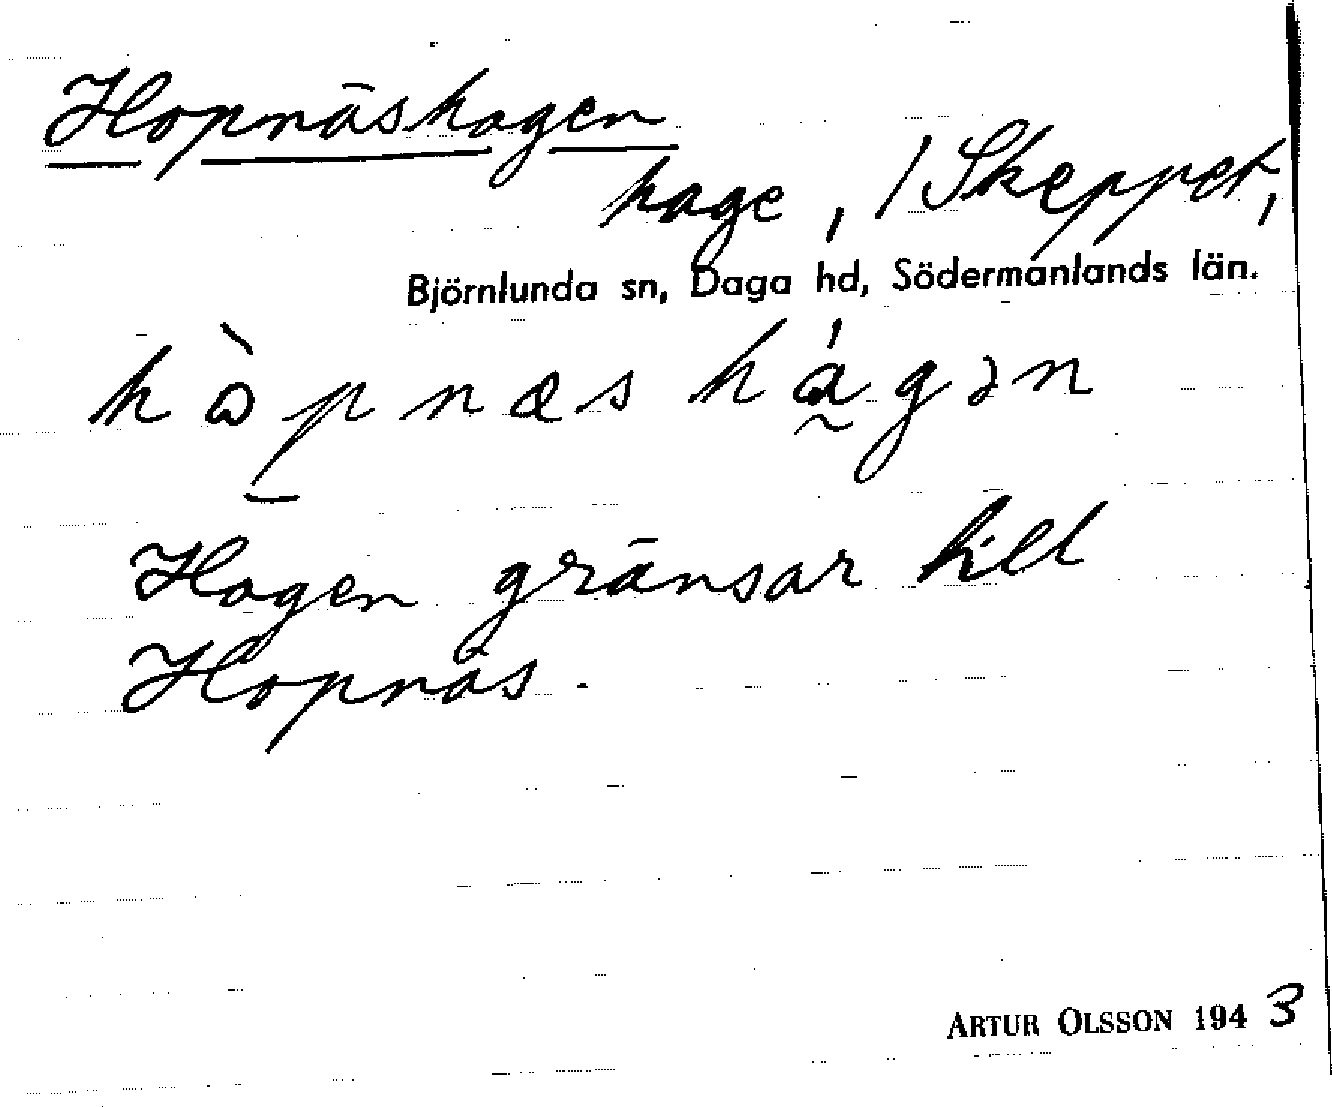 Hopnäshagen
hage, / Skeppet,
Björnlunda sn, Daga hd, Södermanlands län.
hòpnæshágən
Hagen gränsar till
Hopnäs.
ARTUR OLSSON 1943